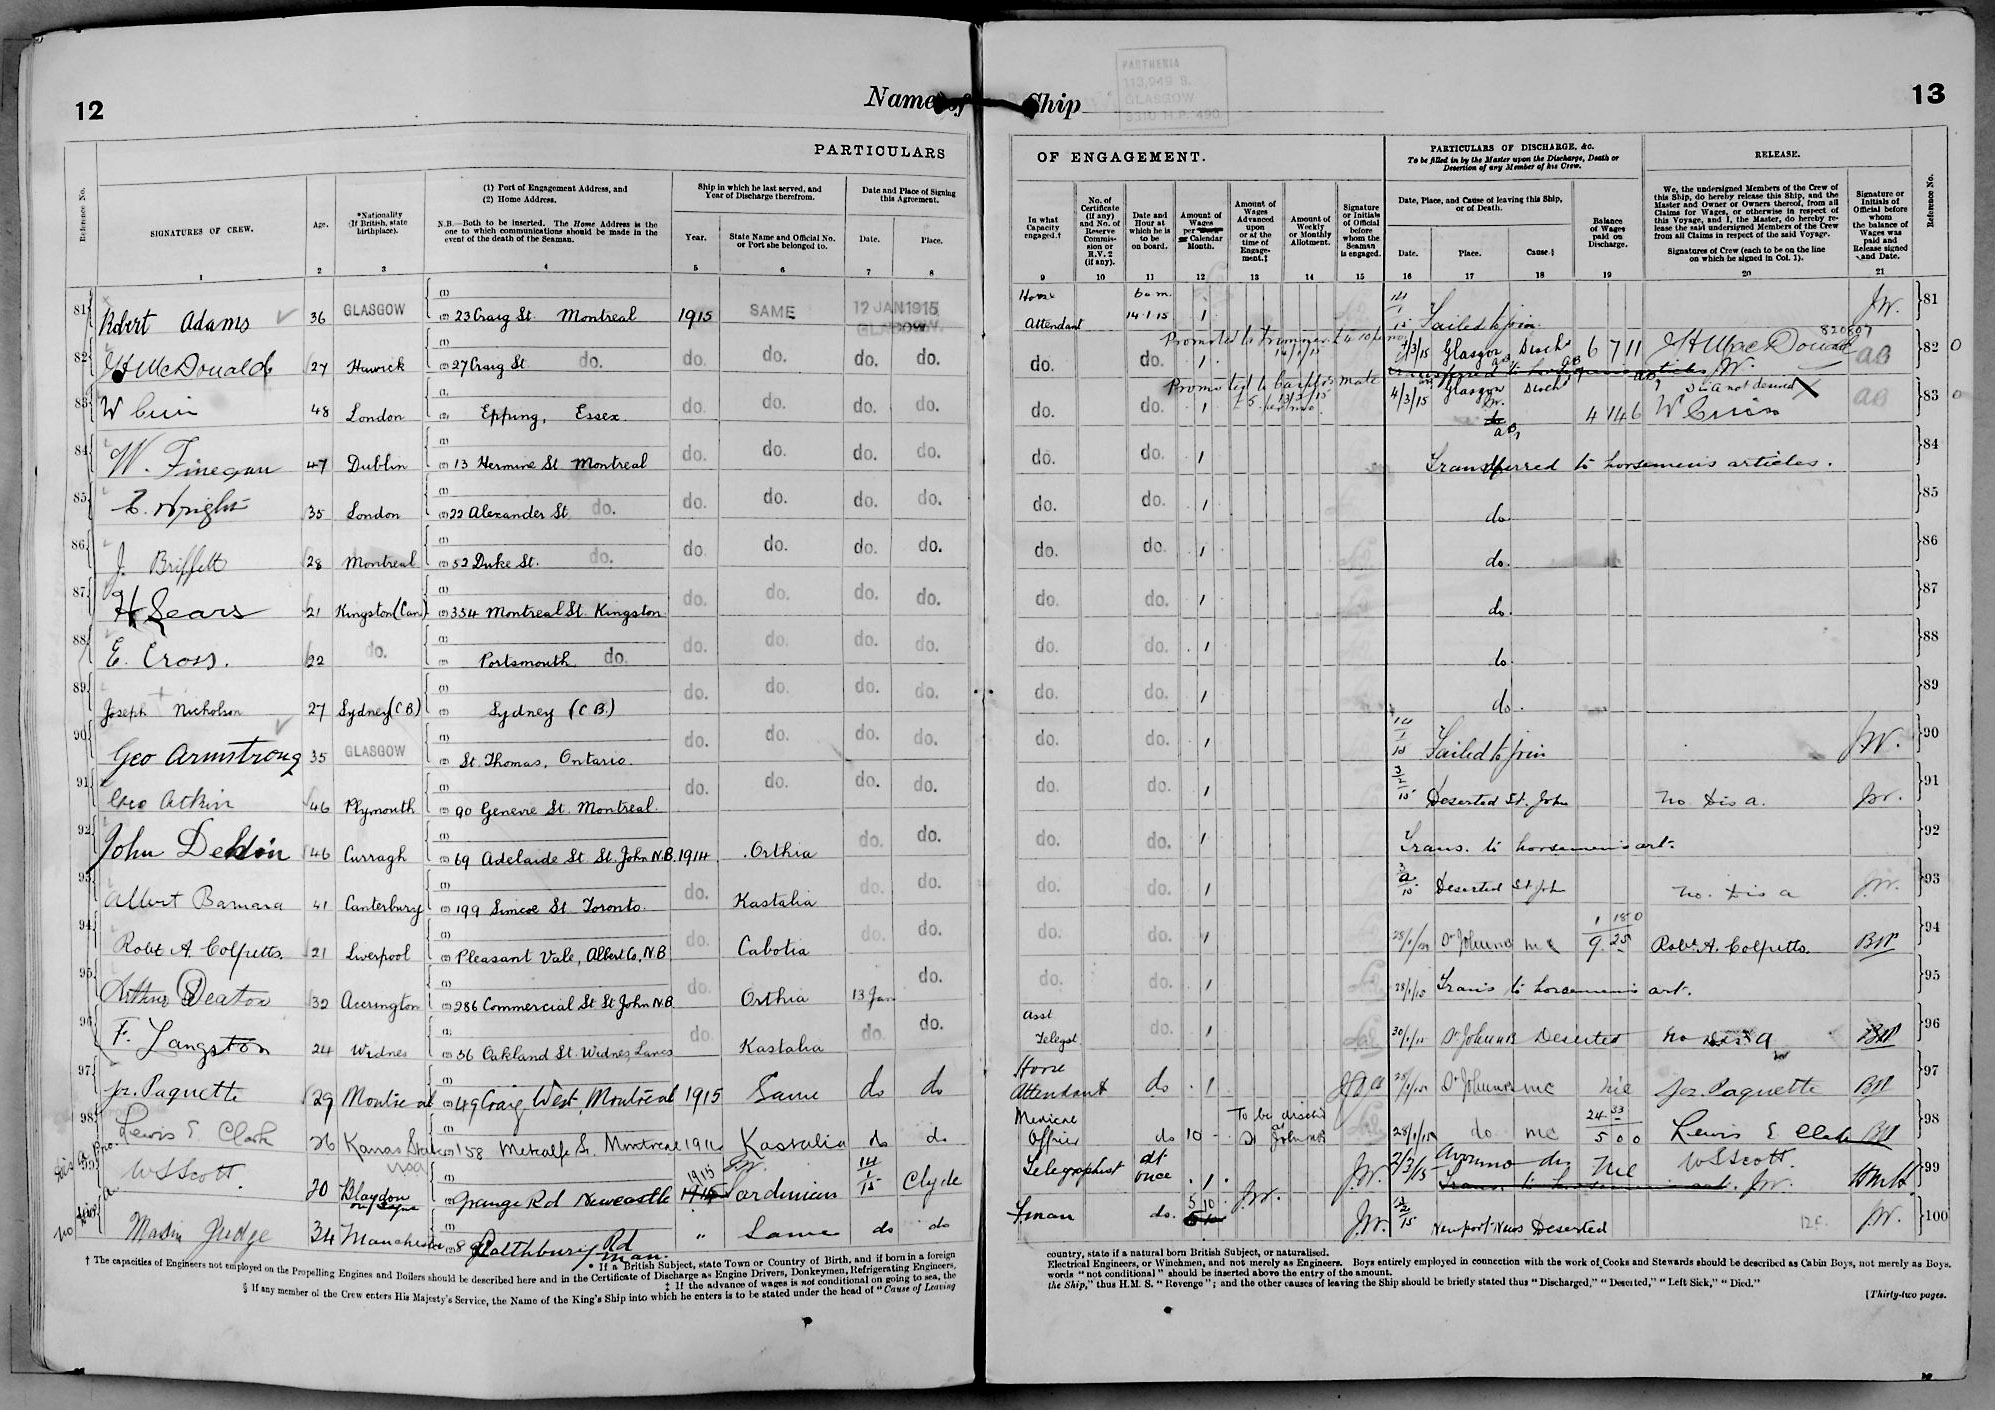 12
Name of Ship
PARTHENIA
113,949 S.
GLASGOW
N.H.P. 490
13
PARTICULARS
OF ENGAGEMENT.
PARTICULARS OF DISCHARGE, &c.
To be filled in by the Master upon the Discharge, Death or Desertion of any Member of his Crew.
RELEASE.
Reference No.
SIGNATURES OF CREW.
Age.
*Nationality (If British, state birthplace).
(1) Port of Engagement Address, and
(2) Home Address.
N.B.—Both to be inserted. The Home Address is the one to which communications should be made in the event of the death of the Seaman.
Ship in which he last served, and Year of Discharge therefrom.
Year.
State Name and Official No. or Port she belonged to.
Date and Place of Signing this Agreement.
Date.
Place.
In what Capacity engaged.†
No. of Certificate (if any) and No. of Reserve Commission or R.V. 2 (if any).
Date and Hour at which he is to be on board.
Amount of Wages per Calendar Month.
Amount of Wages Advanced upon or at the time of Engagement.‡
Amount of Weekly or Monthly Allotment.
Signature or Initials of Official before whom the Seaman is engaged.
Date, Place, and Cause of leaving this Ship, or of Death.
Date.
Place.
Cause.§
Balance of Wages paid on Discharge.
We, the undersigned Members of the Crew of this Ship, do hereby release this Ship, and the Master and Owner or Owners thereof, from all Claims for Wages, or otherwise in respect of this Voyage, and I, the Master, do hereby release the said undersigned Members of the Crew from all Claims in respect of the said Voyage.
Signatures of Crew (each to be on the line on which he signed in Col. 1).
Signature or Initials of Official before whom the balance of Wages was paid and Release signed and Date.
Reference No.
1 2 3 4 5 6 7 8 9 10 11 12 13 14 15 16 17 18 19 20 21
81 Robert Adams 36 GLASGOW (1) (2) 23 Craig St. Montreal 1915 SAME 12 JAN 1915 GLASGOW Horse Attendant 6 a.m. 14.1.15 1 14/1/15 Failed to join. J.W. 81
Promoted to trimmer
82 J H McDonald 27 Hawick (1) (2) 27 Craig St do. do. do. do. do. do. do. 1 4/3/15 Glasgow Disch 6 7 11 J H MacDonald 820807 AB 82
Promoted to Carptrs mate
83 W Crisi 48 London (1) (2) Epping, Essex. do. do. do. do. do. do. 1 4/3/15 Glasgow Disch 4 14 6 Dis A not desired W Crisi AB 83
84 W. Finegan 47 Dublin (1) (2) 13 Hermine St Montreal do. do. do. do. do. do. 1 Transferred to horsemen's articles. 84
85 E. Wright 35 London (1) (2) 22 Alexander St. do. do. do. do. do. do. do. 1 do. 85
86 J. Briffett 28 Montreal (1) (2) 52 Duke St. do. do. do. do. do. do. do. 1 do. 86
87 H Sears 21 Kingston (Can.) (1) (2) 334 Montreal St. Kingston do. do. do. do. do. do. 1 do. 87
88 E. Cross. 22 do. (1) (2) Portsmouth do. do. do. do. do. do. do. 1 do. 88
89 Joseph Nicholson 27 Sydney (C B) (1) (2) Sydney (C B.) do. do. do. do. do. do. 1 do. 89
90 Geo Armstrong 35 GLASGOW (1) (2) St. Thomas, Ontario. do. do. do. do. do. do. 1 14/1/15 Failed to join J.W. 90
91 Geo Atkin 46 Plymouth (1) (2) 90 Genevre St. Montreal. do. do. do. do. do. do. 1 3/2/15 Deserted St. John No Dis A. J.W. 91
92 John Deldin 46 Curragh (1) (2) 69 Adelaide St St. John N.B. 1914 Orthia do. do. do. do. 1 Trans. to horsemen's art. 92
93 Albert Barnard 41 Canterbury (1) (2) 199 Simcoe St. Toronto. do. Kastalia do. do. do. do. 1 Deserted St John No. Dis A J.W. 93
94 Robt A. Colpitts. 21 Liverpool (1) (2) Pleasant Vale, Albert Co, N.B do. Cabotia do. do. do. do. 1 28/1/15 St John NB MC 1 18 0 9.25 Robt A. Colpitts. 94
95 Arthur Deaton 32 Accrington (1) (2) 286 Commercial St St John N.B. do. Orthia 13 Jan do. do. do. 1 28/1/15 Trans to horsemen's art. 95
96 F. Langston 24 Widnes (1) (2) 36 Oakland St. Widnes Lancs do. Kastalia do. do. Asst Telegst do. 1 30/1/15 St John NB Deserted No Dis A 96
97 Jos. Paquette 29 Montreal (1) (2) 49 Craig West, Montreal 1915 Same do do Horse Attendant do 1 28/1/15 St John NB MC nil Jos. Paquette 97
98 Lewis E Clark 26 Kansas State USA (1) (2) 158 Metcalfe St. Montreal 1914 Kastalia do do Medical Officer do 10 - To be disch'd at St John NB 28/1/15 do MC 24.33 5 0 0 Lewis E Clark 98
99 W S Scott. 20 Blaydon on Tyne (1) (2) Grange Rd Newcastle 1915 Sardinian 14/1/15 Clyde Telegraphist at once 1 J.W. J.W. 2/3/15 Avonmo dis Nil W S Scott. 99
100 Martin Judge 34 Manchester (1) (2) 8 Rd Man. " Same do do Fman do. 5 10 J.W. Newport News Deserted J.W. 100
† The capacities of Engineers not employed on the Propelling Engines and Boilers should be described here and in the Certificate of Discharge as Engine Drivers, Donkeymen, Refrigerating Engineers, Electrical Engineers, or Winchmen, and not merely as Engineers. Boys entirely employed in connection with the work of Cooks and Stewards should be described as Cabin Boys, not merely as Boys.
* If a British Subject, state Town or Country of Birth, and if born in a foreign country, state if a natural born British Subject, or naturalised.
‡ If the advance of wages is not conditional on going to sea, the words "not conditional" should be inserted above the entry of the amount.
§ If any member of the Crew enters His Majesty's Service, the Name of the King's Ship into which he enters is to be stated under the head of "Cause of Leaving the Ship," thus H.M. S. "Revenge"; and the other causes of leaving the Ship should be briefly stated thus "Discharged," "Deserted," "Left Sick," "Died."
[Thirty-two pages.